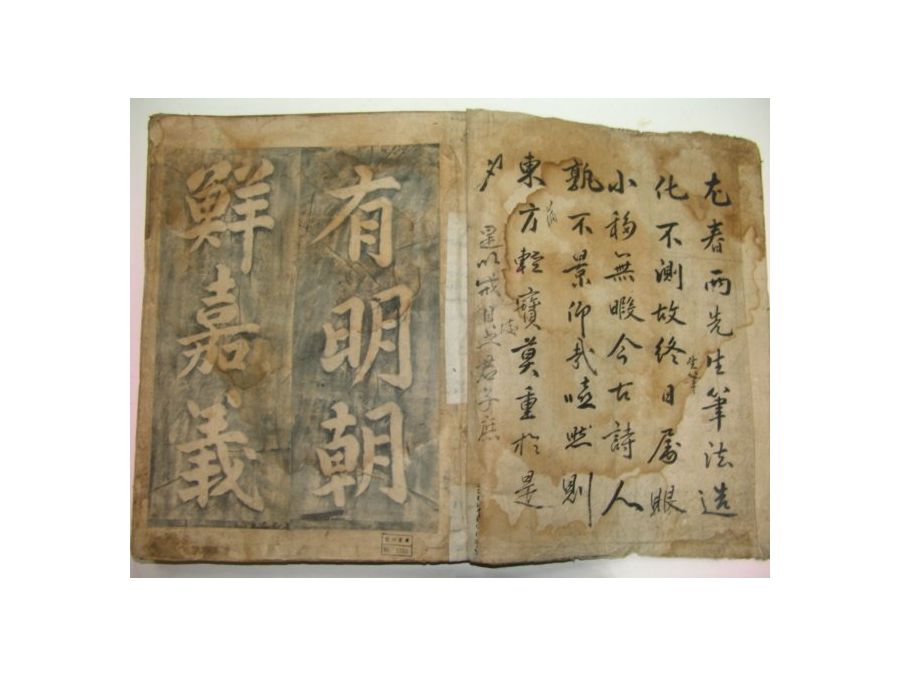 尤春兩先生筆法造
化不測故終日属眼
小移無暇今古詩人
孰不景仰哉噫然則
東方輕寶莫重於是
夕
有明朝
鮮嘉義